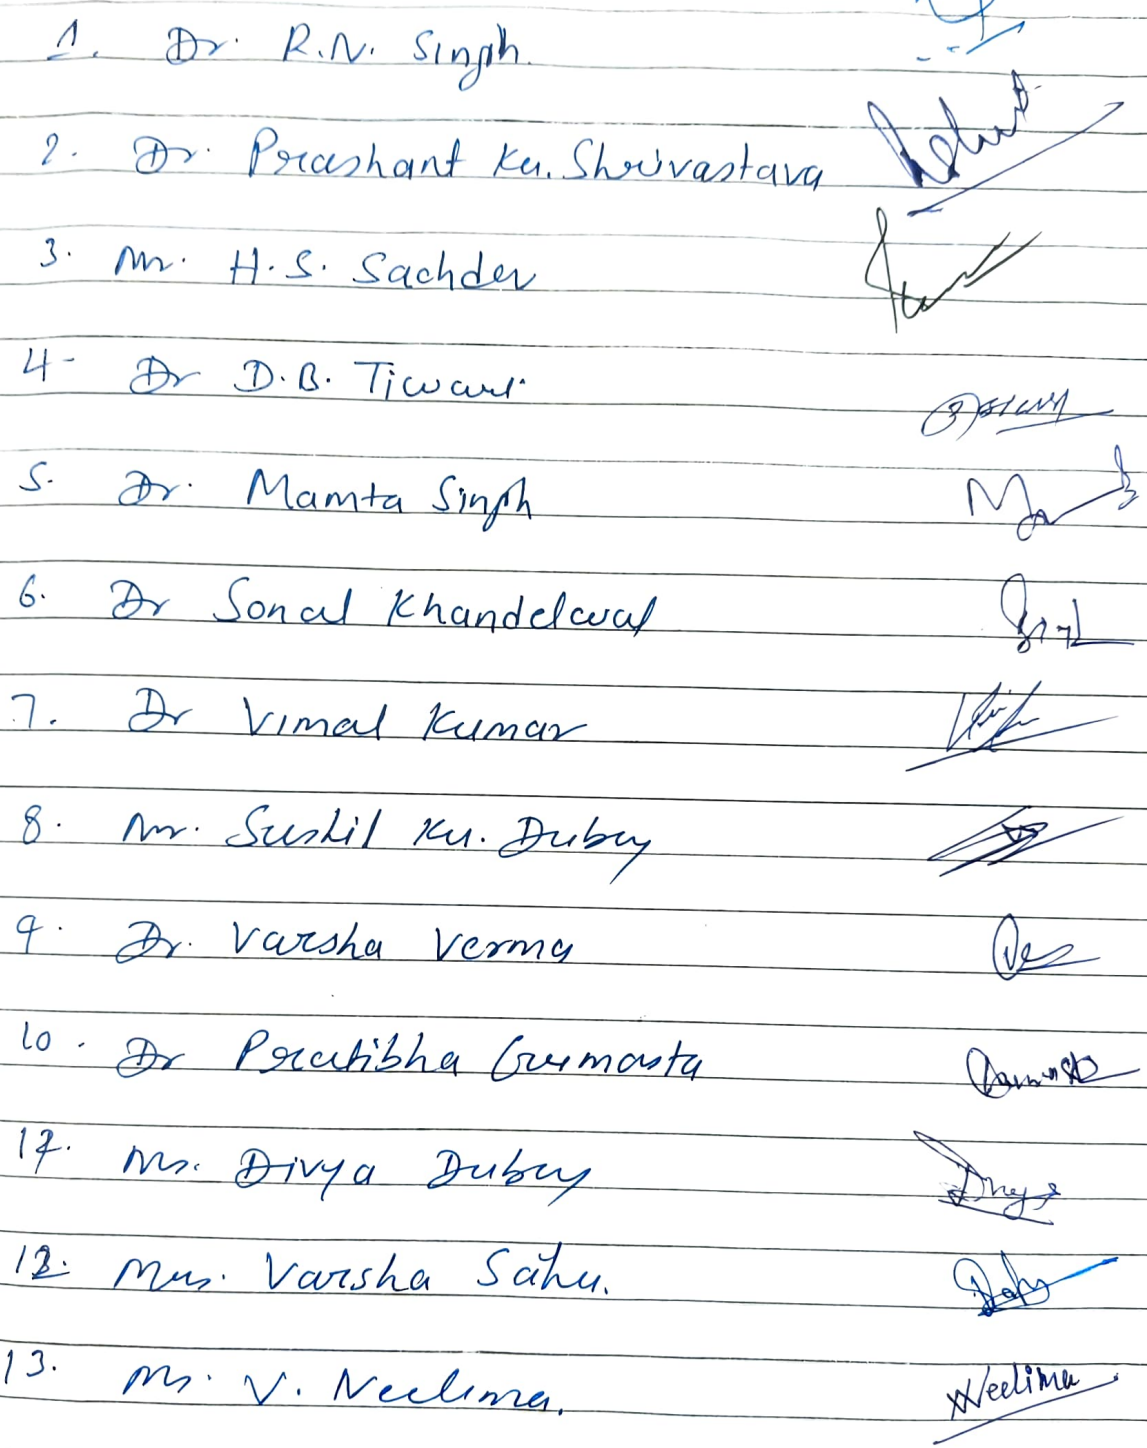 1. Dr. R.N. Singh.
2. Dr. Prashant Ku. Shrivastava
3. Mr. H.S. Sachdev
4- Dr D.B. Tiwari
5. Dr. Mamta Singh
6. Dr Sonal Khandelwal
7. Dr Vimal Kumar
8. Mr. Sushil Ku. Dubey
9. Dr. Varsha Verma
10. Dr Pratibha Gumasta
Ms. Divya Dubey
12. Mrs. Varsha Sahu.
13. Ms. V. Neelima. Neelima